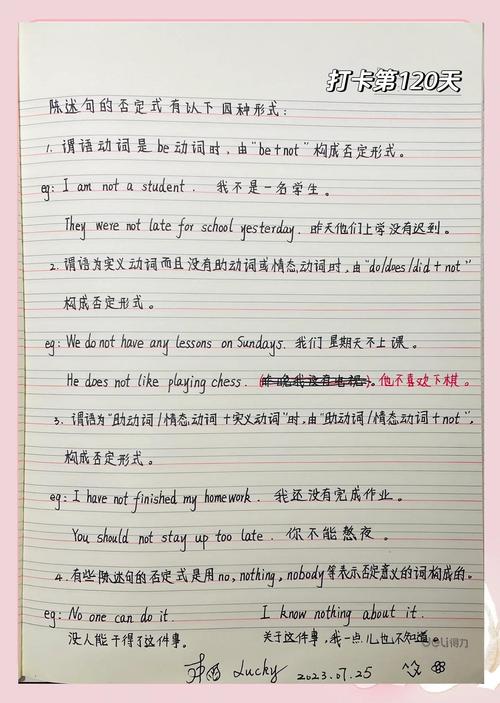 打卡第120天
陈述句的否定式有以下四种形式：
1. 谓语动词是be动词时，由"be+not"构成否定形式。
eg: I am not a student. 我不是一名学生。
They were not late for school yesterday. 昨天他们上学没有迟到。
2. 谓语为实义动词而且没有助动词或情态动词时，由"do/does/did+not"
构成否定形式。
eg: We do not have any lessons on Sundays. 我们星期天不上课。
He does not like playing chess. (昨晚我没有电视)。他不喜欢下棋。
3. 谓语为"助动词/情态动词+实义动词"时，由"助动词/情态动词+not",
构成否定形式。
eg: I have not finished my homework. 我还没有完成作业。
You should not stay up too late. 你不能熬夜。
4. 有些陈述句的否定式是用no, nothing, nobody等表示否定意义的词构成的。
eg: No one can do it. I know nothing about it.
没人能干得了这件事。 关于这件事，我一点儿也不知道。
deli得力
Lucky 2023.07.25